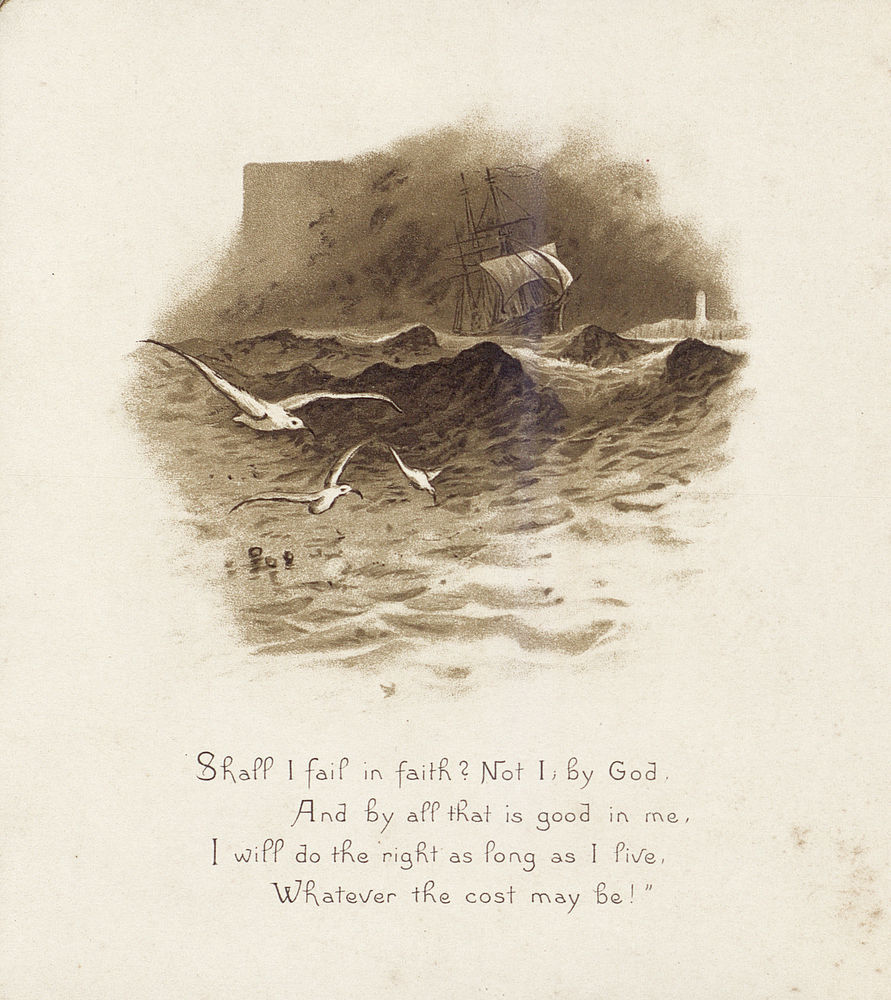 Shall I fail in faith? Not I; by God,
And by all that is good in me,
I will do the right as long as I live,
Whatever the cost may be!"